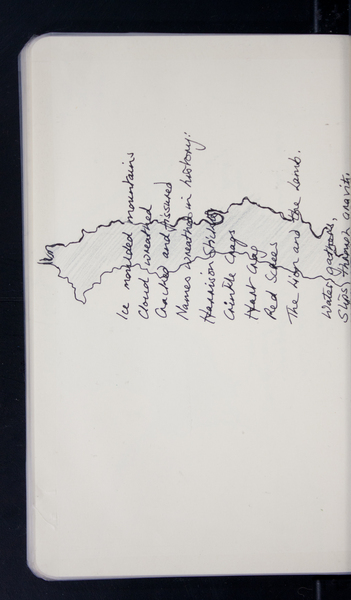 Ice moulded mountains
Cloud wreathed
Cracked and fissured
Names wreathed in history:
Harrison Stickle
Crinkle Crags
Hart Crag
Red Screes
The Lion and the Lamb.
Water gathers,
Slips through gravity,